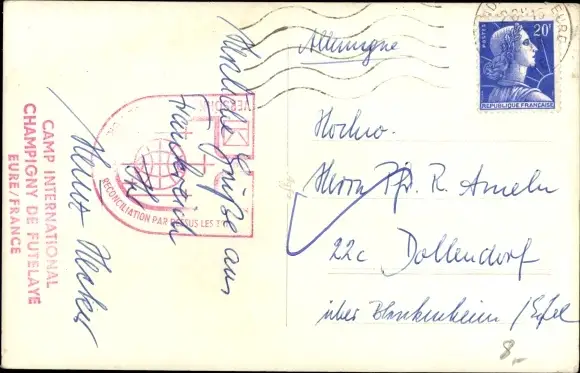 Allemagne
POSTES
20F
REPUBLIQUE FRANÇAISE
EURE
Herzliche Grüße aus
Frankreich
Ihr
CAMP INTERNATIONAL
CHAMPIGNY DE FUTELAYE
EURE/FRANCE
RECONCILIATION PAR DESSUS LES
Hochw.
Herrn Pfr. R. Ameln
22c Dollendorf
über Blankenheim / Eifel
8,-